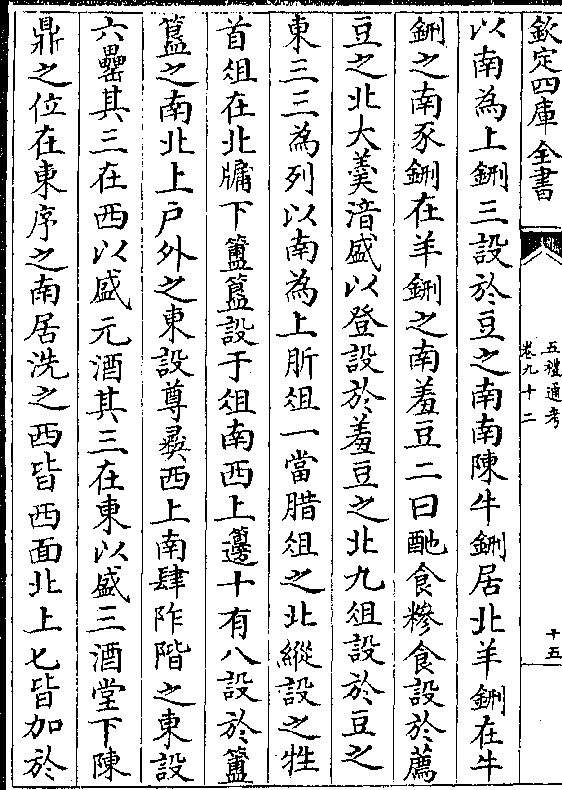 欽定四庫全書
五禮通考
卷九十二
十五
以南為上鉶三設於豆之南南陳牛鉶居北羊鉶在牛
鉶之南豕鉶在羊鉶之南羞豆二曰酏食糝食設於薦
豆之北大羹湆盛以登設於羞豆之北九俎設於豆之
東三三為列以南為上肵俎一當腊俎之北縱設之牲
首俎在北牖下簠簋設于俎南西上籩十有八設於簠
簋之南北上户外之東設尊彞西上南肆阼階之東設
六罍其三在西以盛元酒其三在東以盛三酒堂下陳
鼎之位在東序之南居洗之西皆西面北上匕皆加於